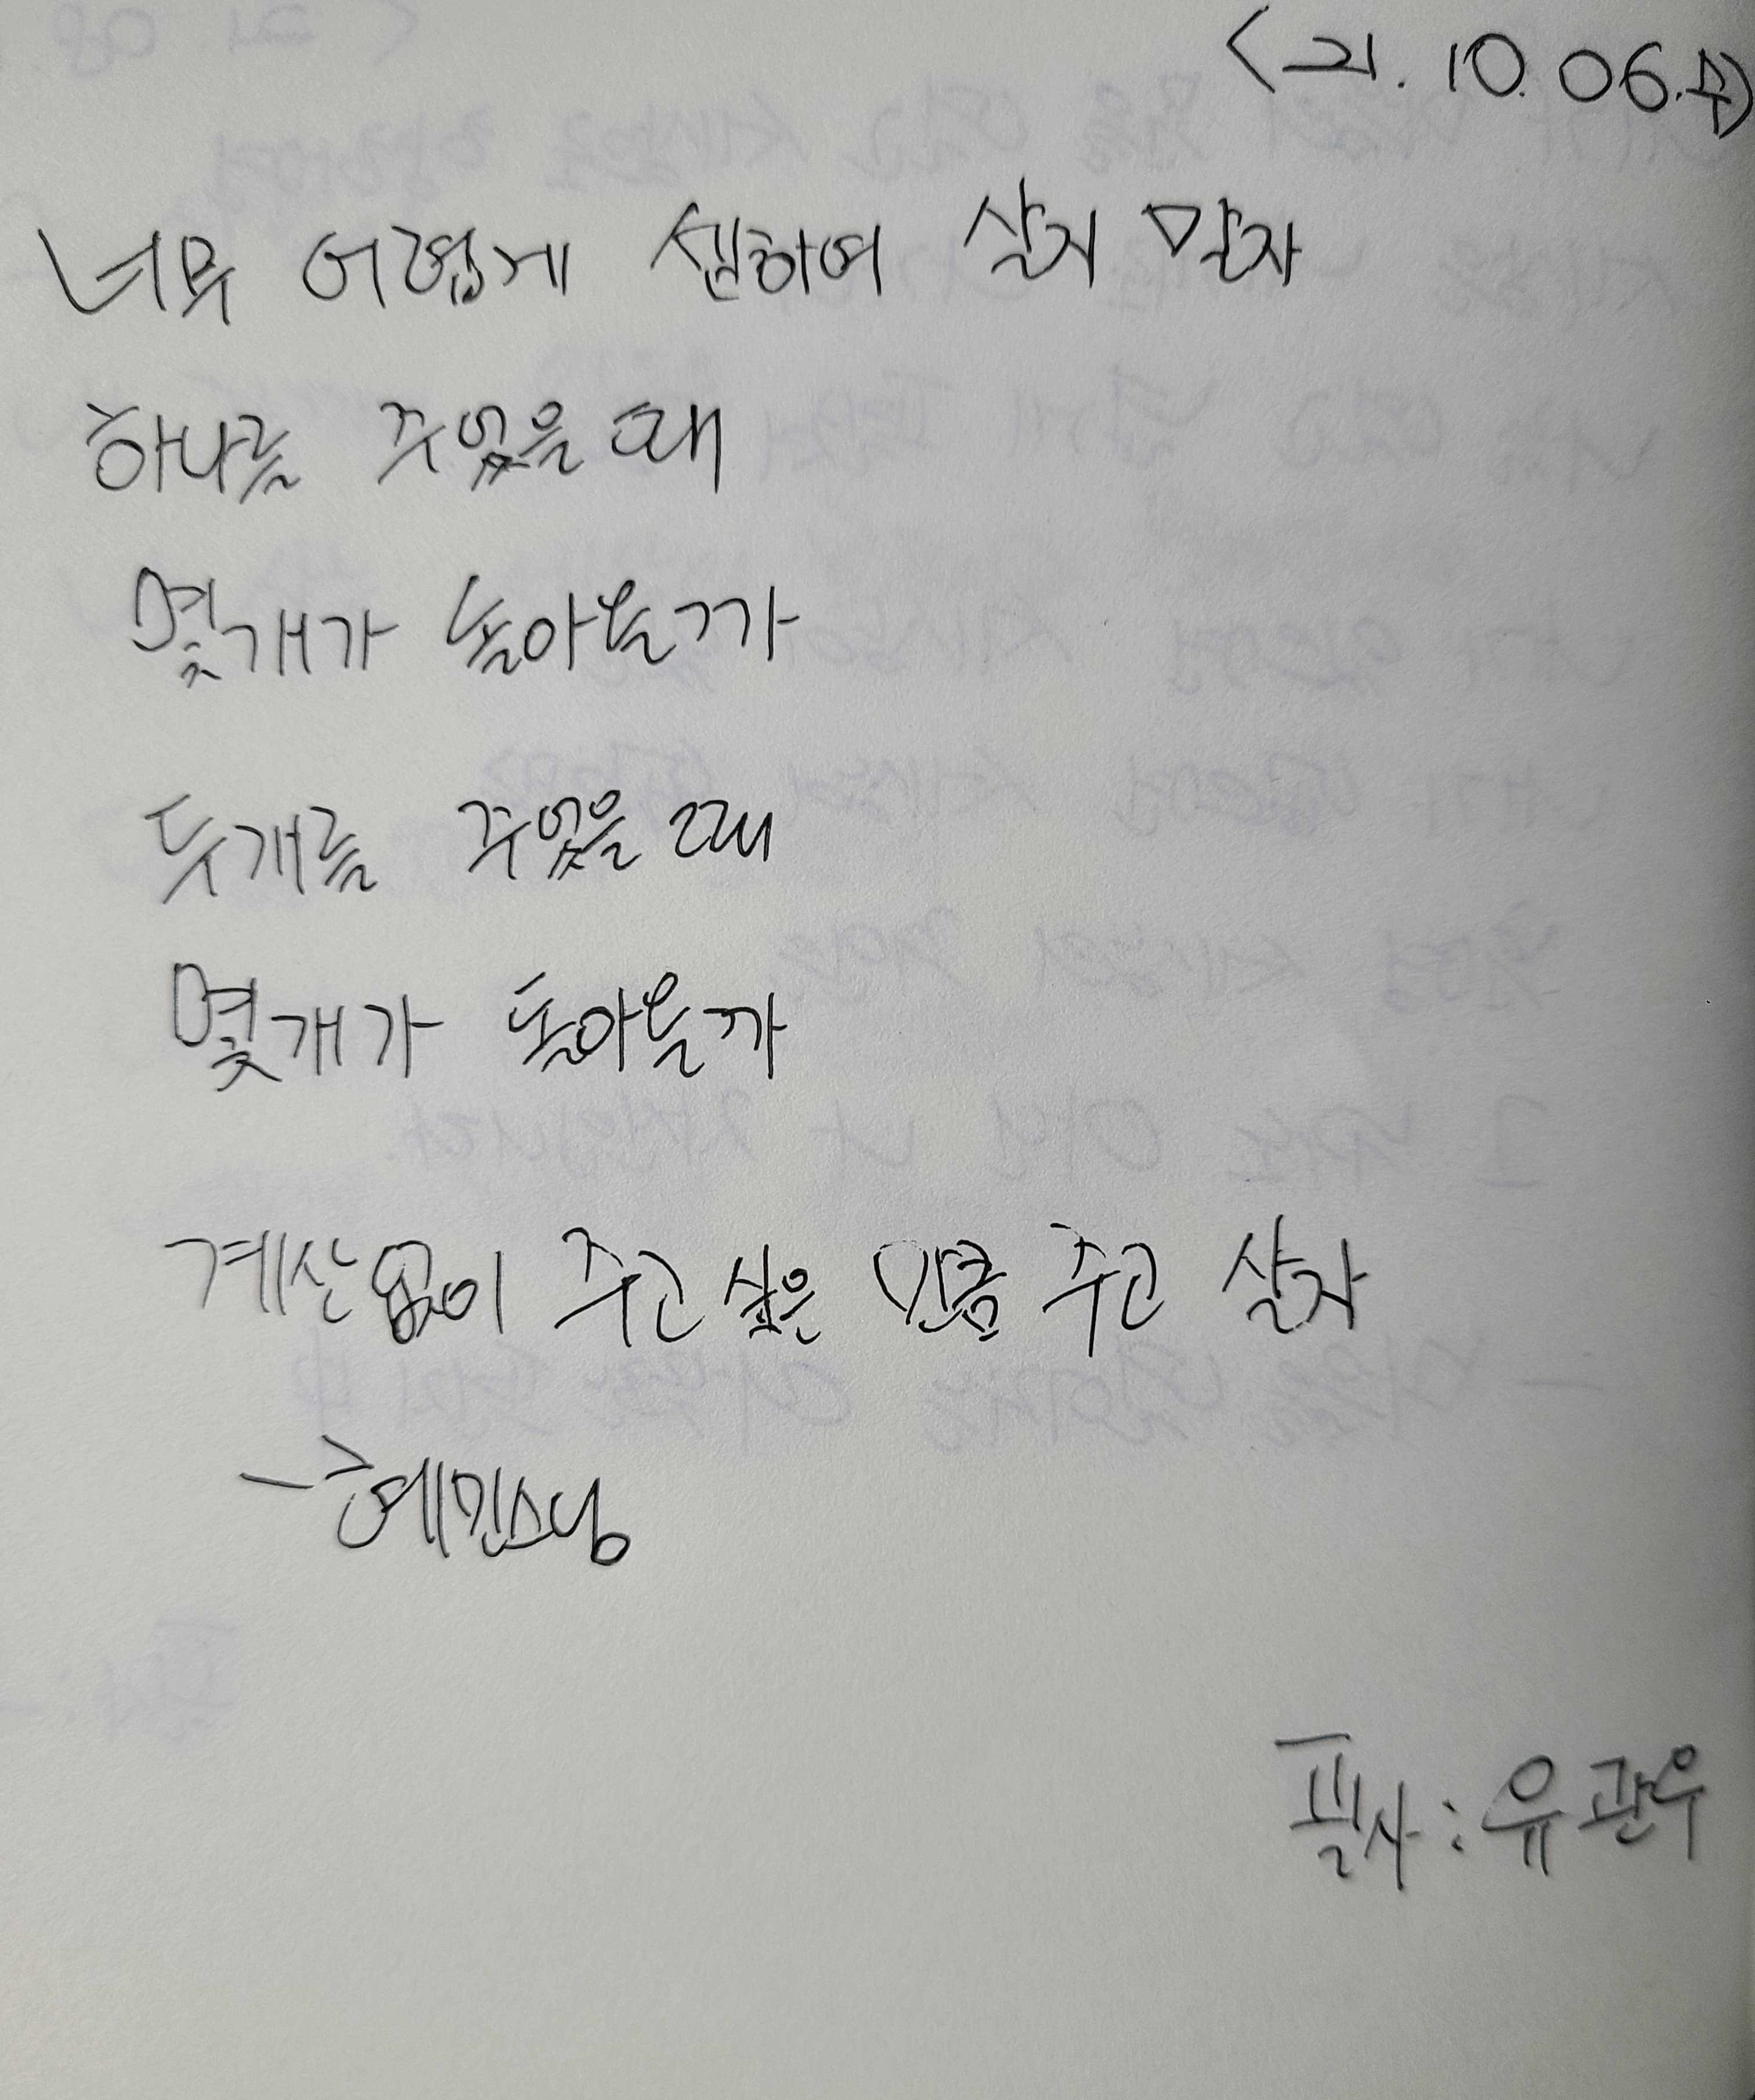 <21.10.06.수>
너무 어렵게 셈하여 살지 말자
하나를 주었을 때
몇개가 돌아올까
두개를 주었을 때
몇개가 돌아올까
계산없이 주고 싶은 만큼 주고 살자
- 혜민스님
필사 : 유관우